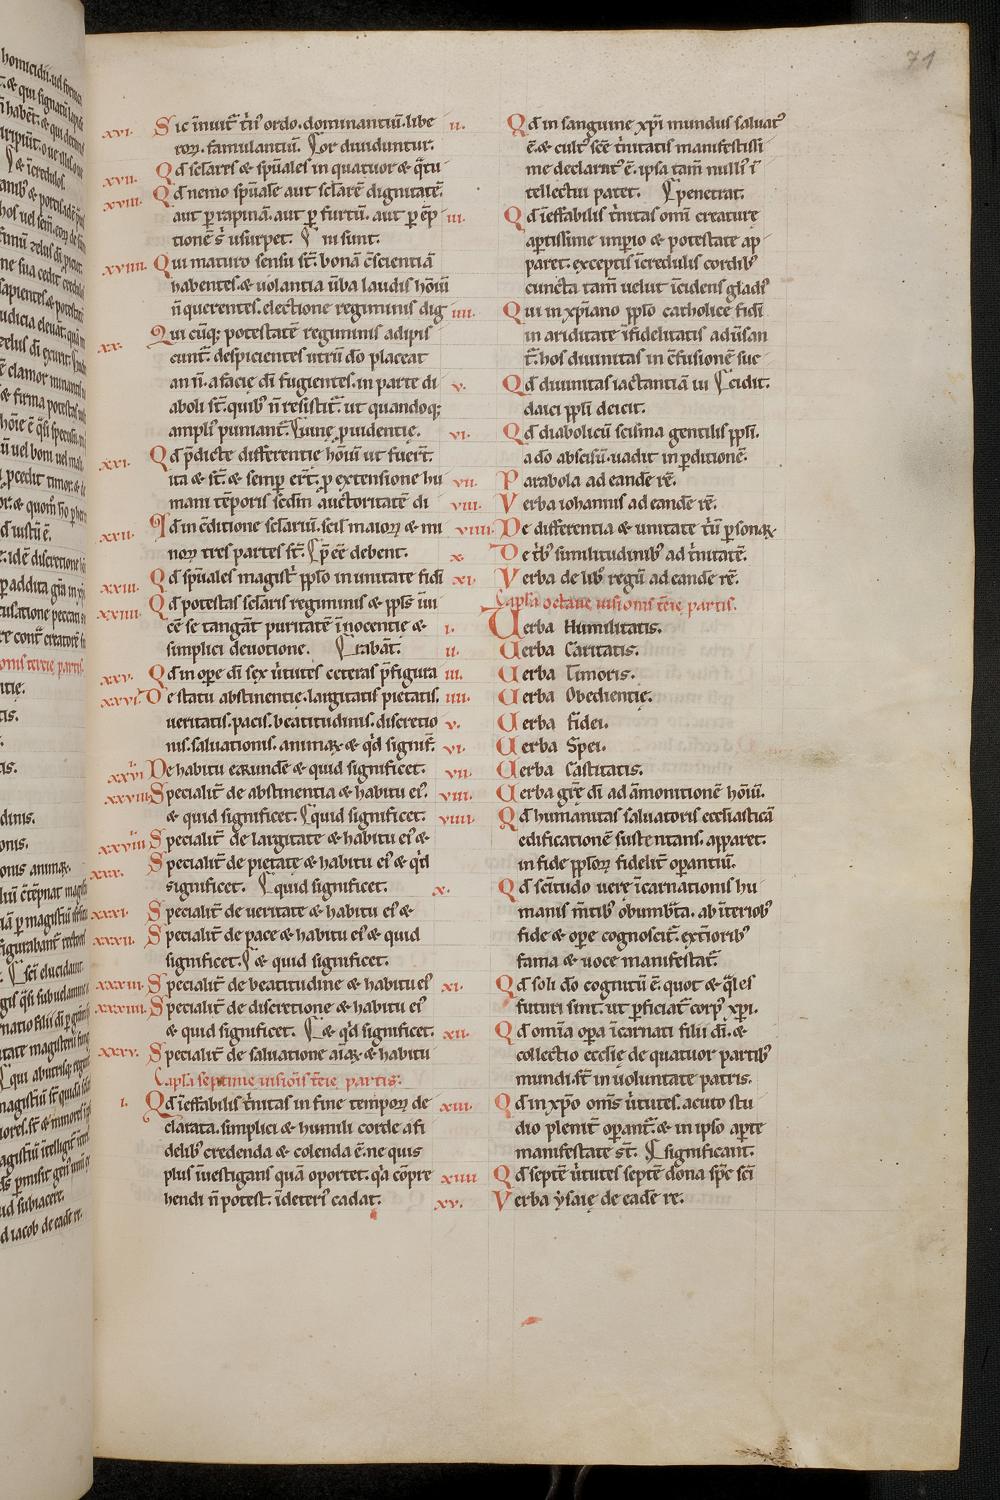 71
xvi. Sic inuit᷑ t̃n᷑ ordo. dominantiū. libe
roꝝ. famulantiū. ⁋ or diuiduntur.
xvii. Qd sc̄lares & sp̄uales in quatuor & q̄tu
xviii. Qd nemo sp̄uale aut sc̄larē dignitatē
aut ꝑ rapinā. aut ꝑ furtū. aut ꝑ ēp
tionē s᷑ usurpet. ⁋ ui sunt.
xviiii. Qui maturo sensu st̄. bonā c̄scientiā
habentes. & uolantia ūba laudis hōiū
n̄ querentes. electione regiminis dig
xx. Qui cūq; potestatē regiminis adipis
cunt᷑. despicientes utrū dō placeat
an n̄. a facie dī fugientes. in parte di
aboli st̄. quibꝰ n̄ resistit᷑. ut quandoq;
ampliꝰ puniant᷑. ⁋ uinę ꝓuidentię.
xxi. Qd p̄dictę differentię hōiū ut fuer̄t
ita & st̄. & semꝑ er̄t. ꝓ extensione hu
mani tēporis sedm̄ auctoritatē di
xxii. Qd in c̄ditione sc̄lariū. scil᷑ maioꝝ & mi
noꝝ tres partes st̄. ⁋ p̄eē debent.
xxiii. Qd sp̄uales magist᷑ ꝑplo in unitate fidi
xxiiii. Qd potestas sc̄laris regiminis & ꝑpls īui
cē se tangāt puritatē īnocentię &
simplici deuotione. ⁋ rabāt᷑.
xxv. Qd in oꝑe dī sex ūtutes ceteras p̄figura
xxvi. De statu abstinentię. largitatis pietatis.
ueritatis. pacis. beatitudinis. discretio
nis. saluationis. animaꝝ. & qd signif᷑.
xxvii De habitu earundē & quid significet.
xxviii. Specialit᷑ de abstinentia & habitu eiꝰ.
& quid significet. ⁋ quid significet.
xxviiii Specialit᷑ de largitate & habitu eiꝰ &
xxx. Specialit᷑ de pietate & habitu eiꝰ & qd
significet. ⁋ quid significet.
xxxi. Specialit᷑ de ueritate & habitu eiꝰ &
xxxii. Specialit᷑ de pace & habitu eiꝰ & quid
significet. ⁋ & quid significet.
xxxiii. Specialit᷑ de beatitudine & habitu eiꝰ
xxxiiii. Specialit᷑ de discretione & habitu eiꝰ
& quid significet. ⁋ & qd significet.
xxxv. Specialit᷑ de saluatione aīaꝝ & habitu
Capl̄a septimę uisiōis t̄cię partis.
i. Qd īeffabilis t̄nitas in fine tempoꝝ de
clarata. simplici & humili corde a fi
delibꝰ credenda & colenda ē. ne quis
plus īuestigans quā oportet. qa cōpre
hendi n̄ potest. īdeteriꝰ cadat.
ii. Qd in sanguine xp̄i mundus saluat᷑
ē. & cultꝰ sc̄e t̄nitatis manifestissi
me declaratꝰ ē. ipsa tam̄ nulliꝰ ī
tellectui patet. ⁋ penetrat.
iii. Qd īeffabilis t̄nitas om̄i creaturę
aptissime imperio & potestate ap
paret. exceptis īcredulis cordibꝰ
cuncta tam̄ uelut īcidens gladiꝰ
iiii. Qui in xp̄iano ꝑplo catholicę fidi
in ariditate īfidelitatis aduīsan
t᷑. hos diuinitas in c̄fusionē suc
v. Qd diuinitas iactantiā iu ⁋ cidit.
daici ꝑpli deicit.
vi. Qd diabolicū scisma gentilis ꝑpli.
a dō abscisū. uadit in ꝑditionē.
vii. Parabola ad eandē rē.
viii. Verba iohannis ad eandē rē.
viiii. De differentia & unitate t̄ū ꝑsonaꝝ.
x. De t̄bꝰ similitudinibꝰ ad t̄nitatē.
xi. Verba de libꝰ regū ad eandē rē.
Capl̄a octauę uisionis t̄cię partis.
i. Uerba Humilitatis.
ii. Uerba Caritatis.
iii. Uerba Timoris.
iiii. Uerba Obedientię.
v. Uerba Fidei.
vi. Uerba Spei.
vii. Uerba Castitatis.
viii. Uerba gr̄ę dī ad āmonitionē hōiū.
viiii. Qd humanitas saluatoris ecclesiasticā
edificationē sustentans. apparet.
in fide ꝑploꝝ fidelit᷑ oꝑantiū.
x. Qd scītudo uerę īcarnationis hu
manis m̄tibꝰ obumb̄ta. ab īteriobꝰ
fide & oꝑe cognoscit᷑. ext̄ioribꝰ
fama & uoce manifestat᷑.
xi. Qd soli dō cognitū ē. quot & q̄les
futuri sint. ut ꝑficiat᷑ corpꝰ xp̄i.
xii. Qd om̄ia oꝑa īcarnati filii dī. &
collectio ecclīę de quatuor partibꝰ
mundi. st̄ in uoluntate patris.
xiii. Qd in xp̄o om̄s ūtutes. acuto stu
dio plenit᷑ oꝑant᷑. & in ipso aꝑte
manifestatę st̄. ⁋ significant.
xiiii Qd septē ūtutes septē dona sp̄c sc̄i
xv. Verba ẏsaię de eadē re.